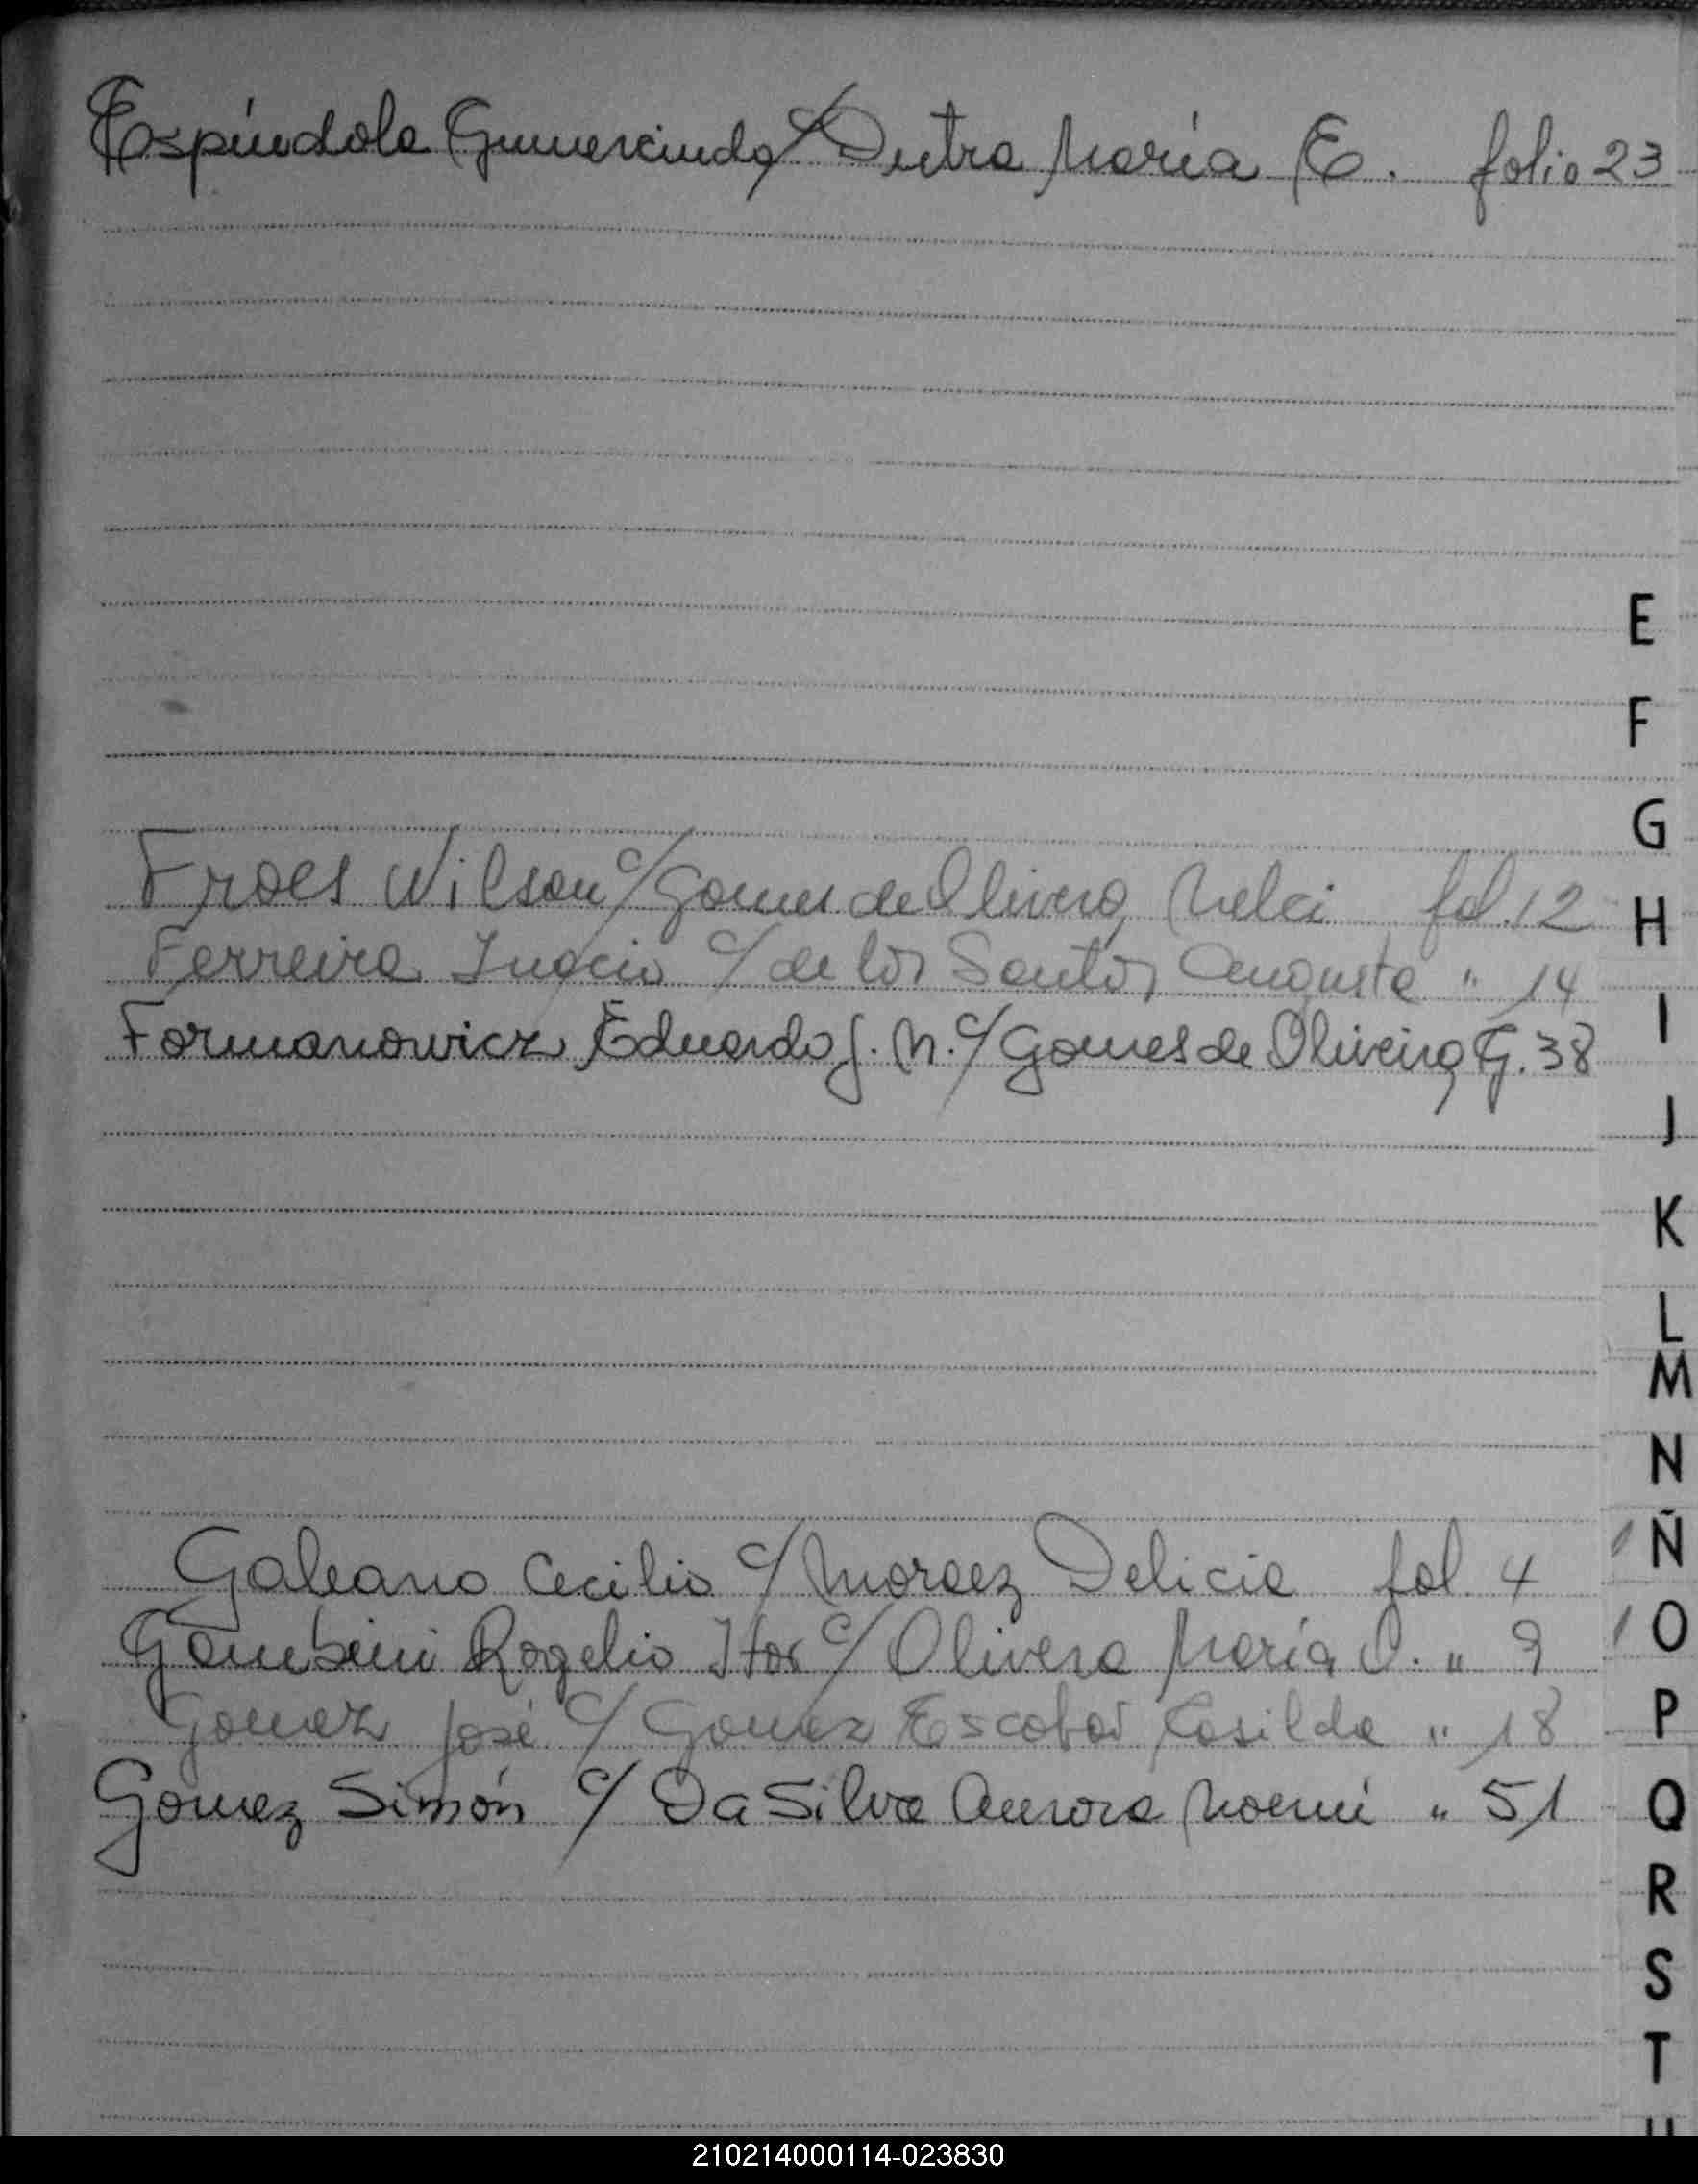 Espíndola Gumercindo c/ Dutra María E. folio 23
E
F
G
Froes Wilson c/ Gomes de Olivera, Nelci fol. 12
H
Ferreira Inacio c/ de los Santos, Augusta " 14
I
Formanowicz, Eduardo J. N. c/ Gomes de Oliveira, G. 38
J
K
L
M
N
Ñ
Galeano Cecilio c/ Moraez Delicia fol. 4
O
Gambini Rogelio c/ Olivera María O. " 9
P
Gomez José c/ Gomez Escobar Casilda " 18
Q
Gomez Simón c/ Da Silva Aurora Noemí " 51
R
S
T
U
210214000114-023830